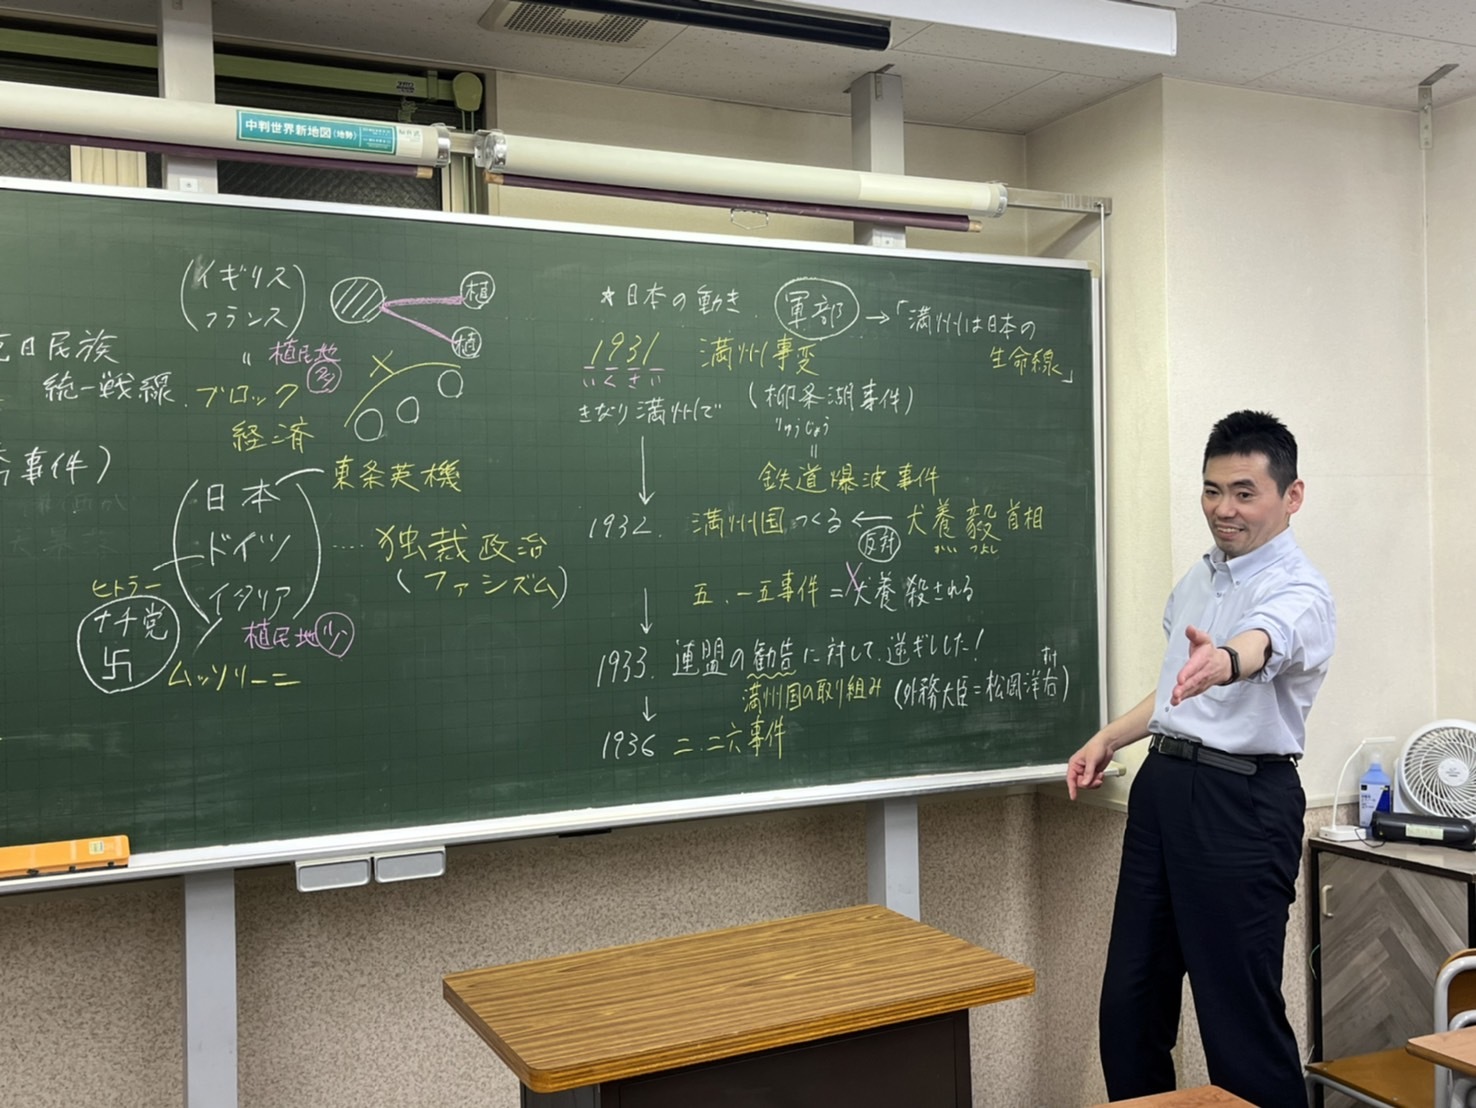 中判世界新地図(地勢)
民族
統一戦線.
事件)
(イギリス
フランス)
〃 植民地
多
植
植
ブロック
経済
(日本
ドイツ
イタリア)
東条英機
……独裁政治
(ファシズム)
ヒトラー
ナチ党
卐
植民地少
ムッソリーニ
★日本の動き. 軍部→「満州は日本の
生命線」
1931 満州事変
いくさい
きなり満州で (柳条湖事件)
りゅうじょう
=
鉄道爆波事件
1932. 満州国つくる ← 犬養毅首相
反対 かい つよし
五.一五事件=犬養殺される
1933. 連盟の勧告に対して.逆ギレした!
満州国の取り組み (外務大臣=松岡洋右)
すけ
1936 二.二六事件